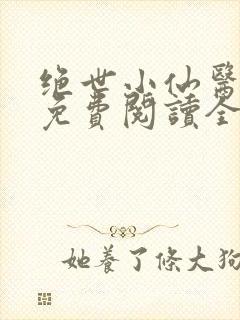 绝世小仙醫
免費閱讀全
她養了條大狗